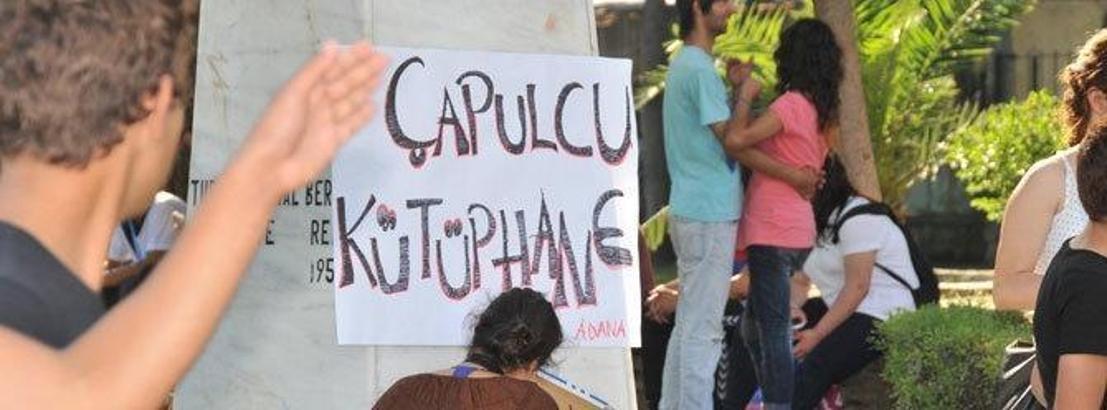 ÇAPULCU
KÜTÜPHANE
ADANA
BER
RE
195